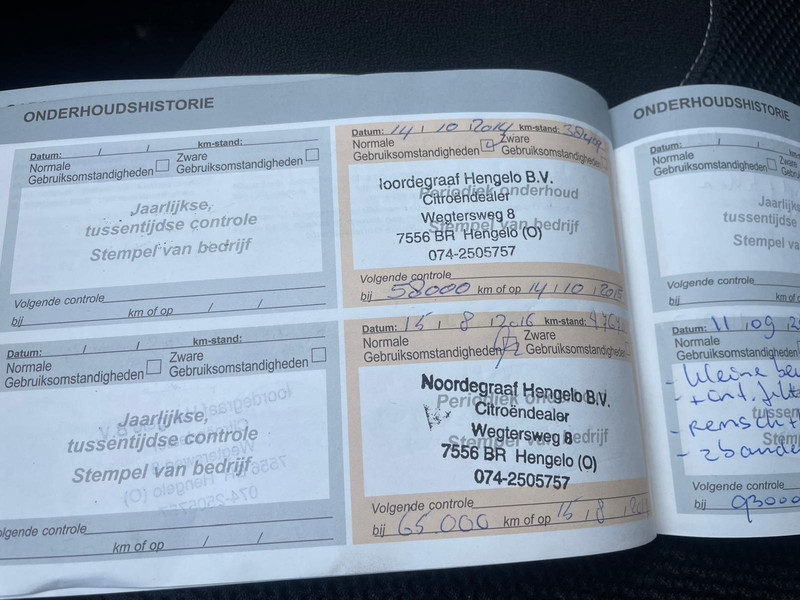 ONDERHOUDSHISTORIE
Datum: / / km-stand:
Normale Gebruiksomstandigheden
Zware Gebruiksomstandigheden
Jaarlijkse,
tussentijdse controle
Stempel van bedrijf
Volgende controle
bij km of op / /
Datum: / / km-stand:
Normale Gebruiksomstandigheden
Zware Gebruiksomstandigheden
Jaarlijkse,
tussentijdse controle
Stempel van bedrijf
lgende controle
km of op / /
Datum: 14 / 10 / 2014 km-stand:
Normale Gebruiksomstandigheden
Zware Gebruiksomstandigheden
Periodiek onderhoud
Stempel van bedrijf
oordegraaf Hengelo B.V.
Citroëndealer
Wegtersweg 8
7556 BR Hengelo (O)
074-2505757
Volgende controle
bij 58000 km of op 14 / 10 / 2015
Datum: 15 / 8 / 2016 km-stand:
Normale Gebruiksomstandigheden
Zware Gebruiksomstandigheden
Periodiek
Stempel van bedrijf
Noordegraaf Hengelo B.V.
Citroëndealer
Wegtersweg 8
7556 BR Hengelo (O)
074-2505757
Volgende controle
bij 65.000 km of op 15 / 8 /
ONDERHOUDSHISTORIE
Datum:
Normale Gebruiksomstandigheden
Zware
Gebruiks
Jaarlijks
tussentijdse
Stempel va
Volgende controle
bij km of op
Datum: 11 / 09
Normale Gebruiksomstandigheden
- kleine
-
- Remsch
-
Volgende controle
bij 93000